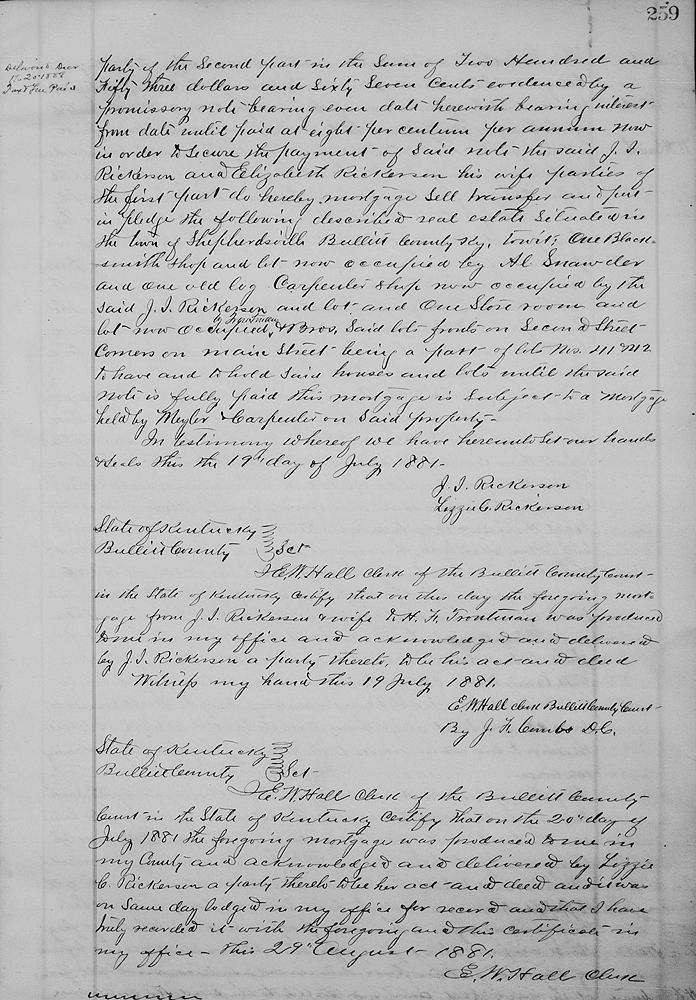 259
party of the Second part in the Sum of Two Hundred and
Fifty three dollars and Sixty Seven Cents evidenced by a
promissory note bearing even date herewith bearing interest
from date until paid at eight per centum per annum now
in order to Secure the payment of Said note the said J. I.
Rickerson and Elizabeth Rickerson his wife parties of
the first part do hereby mortgage Sell transfer and put
in pledge the following described real estate Situated in
the town of Shepherdsville Bullitt County Ky, towit; One Black-
smith Shop and lot now occupied by Al Snawder
and one old log Carpenter Shop now occupied by the
Said J. I. Rickerson and lot and One Store room and
lot now occupied by Troutman & Bros, Said lots fronts on Second Street
Corners on main Street being a part of lots Nos. 41 & 42
to have and to hold Said houses and lots until the said
note is fully paid this mortgage is Subject to a mortgage
held by Meyler & Carpenter on Said property-
In testimony whereof we have hereunto Set our hands
& Seals this the 19" day of July 1881-
J. I. Rickerson
Lizzie C. Rickerson
State of Kentucky
Bullitt County Sct
I E. W. Hall Clerk of the Bullitt County Court-
in the State of Kentucky certify that on this day the foregoing mort
gage from J. I. Rickerson & wife to H. H. Troutman was produced
to me in my office and acknowledged and delivered
by J. I. Rickerson a party thereto, to be his act and deed
Witness my hand this 19 July 1881.
E. W. Hall clerk Bullitt County Court-
By J. F. Combs D.C.
State of Kentucky
Bullitt County Sct-
I E. W. Hall Clerk of the Bullitt County
Court in the State of Kentucky Certify that on the 20" day of
July 1881 the foregoing mortgage was produced to me in
my County and acknowledged and delivered by Lizzie
C. Rickerson a party thereto to be her act and deed and it was
on Same day lodged in my office for record and that I have
truly recorded it with the foregoing and this certificate in
my office- this 29" August- 1881.
E. W. Hall Clerk